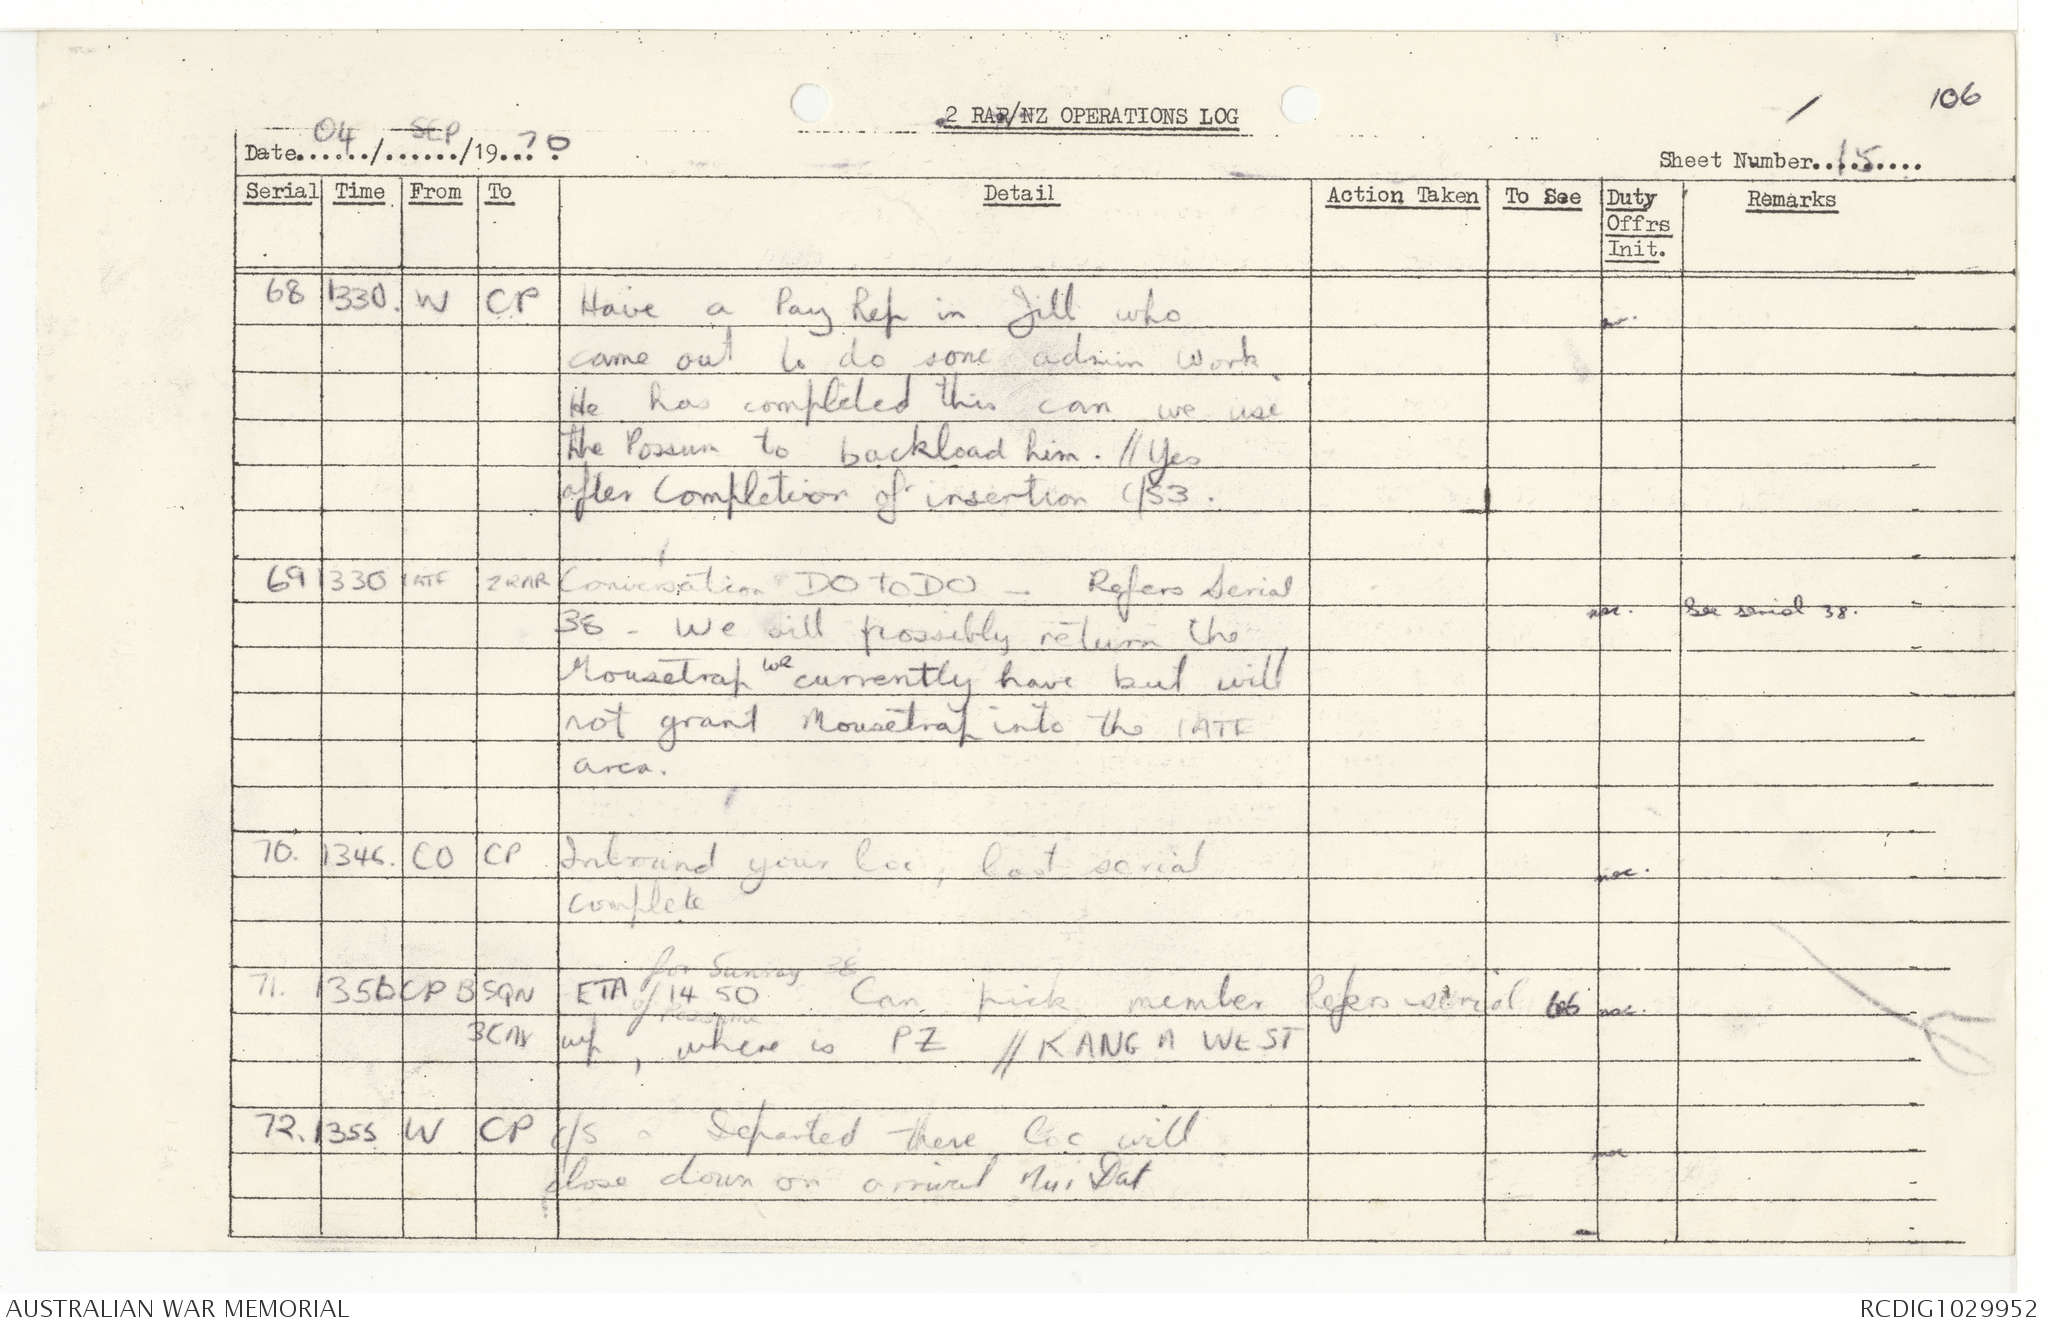 106
2 RAR/NZ OPERATIONS LOG
Date 04/SEP/1970.
Sheet Number 15
Serial Time From To Detail Action Taken To See Duty Offrs Init. Remarks
68 1330. W CP Have a Pay Rep in Jill who
came out to do some admin work.
He has completed this can we use
the Possum to backload him. // Yes
after completion of insertion C/S3.
69 1330 1ATF 2RAR Conversation DO TO DO - Refers Serial
38 - We will possibly return the See serial 38.
Mousetrap we currently have but will
not grant Mousetrap into the 1ATF
area.
70. 1346. CO CP Inbound your loc, last serial
complete
for Sunray 38
71. 1350 CP B SQN ETA of 1450 Can pick member Refers serial 66
Possums
3CAV up, where is PZ // KANGA WEST
72. 1355 W CP C/S Departed there loc will
close down on arrival Nui Dat
AUSTRALIAN WAR MEMORIAL
RCDIG1029952